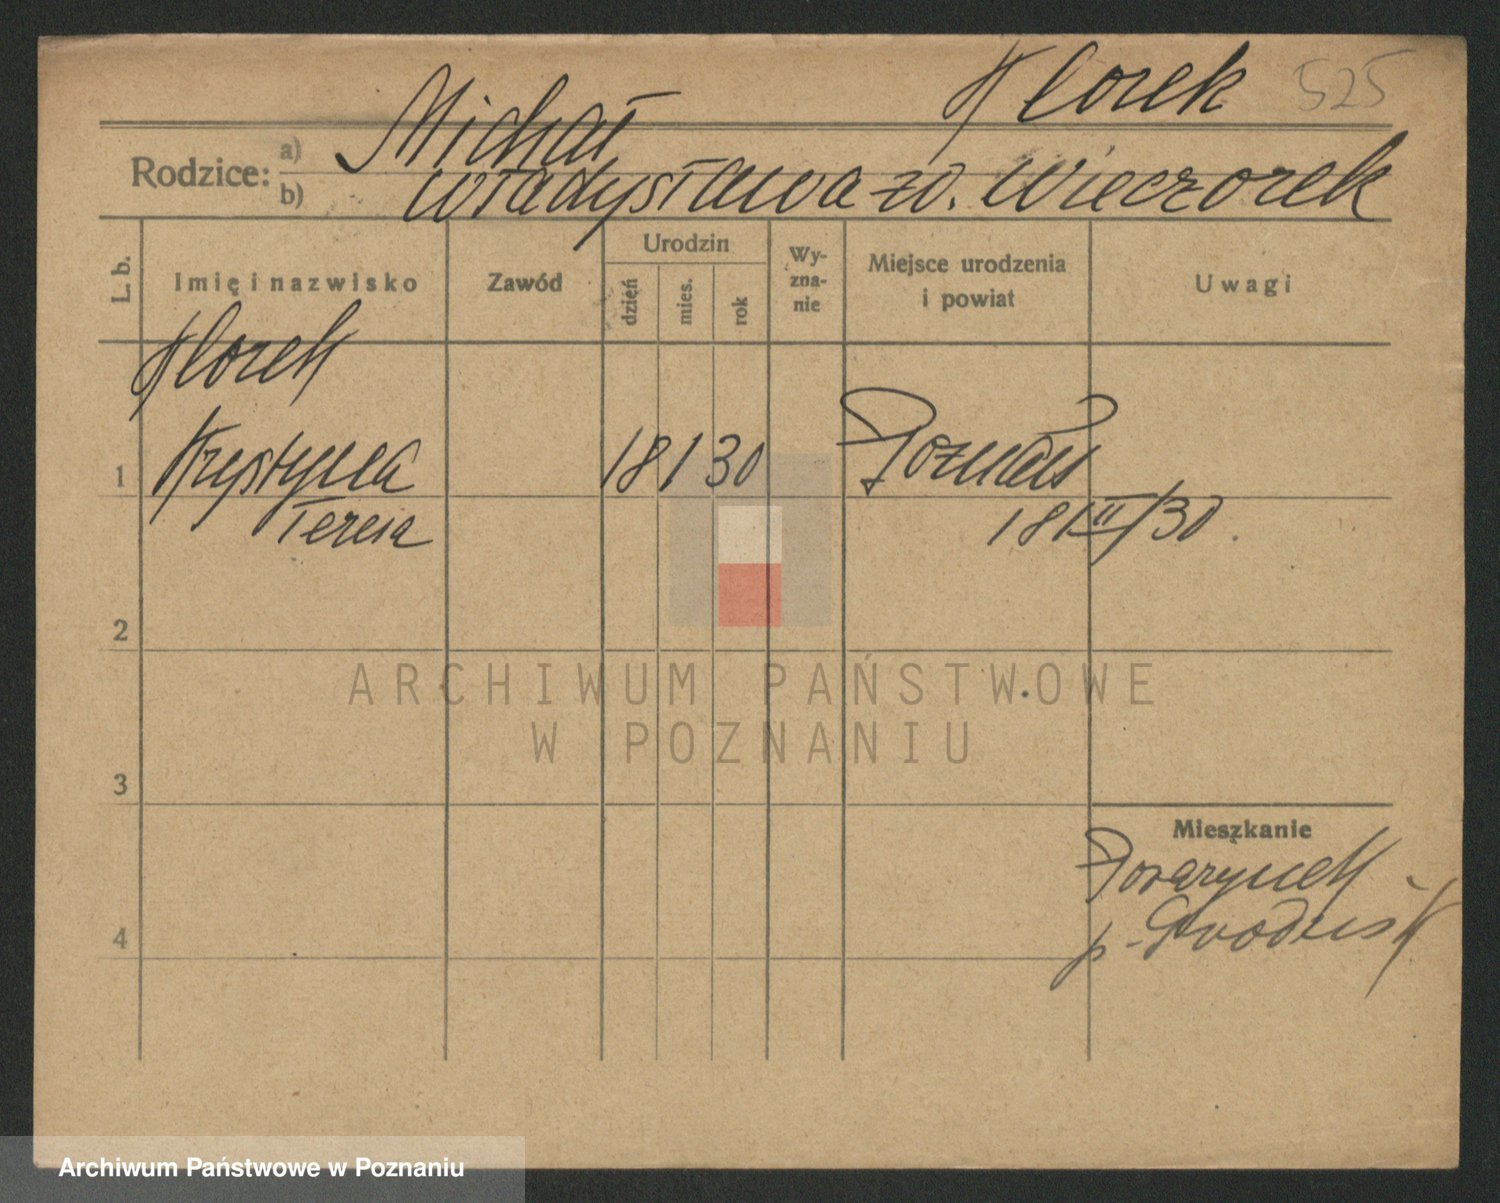 Klorek 525
Michał
Rodzice: a)
b) Władysława zd. Wieczorek
L. b.
Imię i nazwisko
Zawód
Urodzin
dzień
mies.
rok
Wy-
zna-
nie
Miejsce urodzenia
i powiat
Uwagi
Klorek
1 Krystyna 18 1 30 Poznań
Teresa 18/II/30.
2
3
4
Mieszkanie
p.
ARCHIWUM PAŃSTWOWE
W POZNANIU
Archiwum Państwowe w Poznaniu